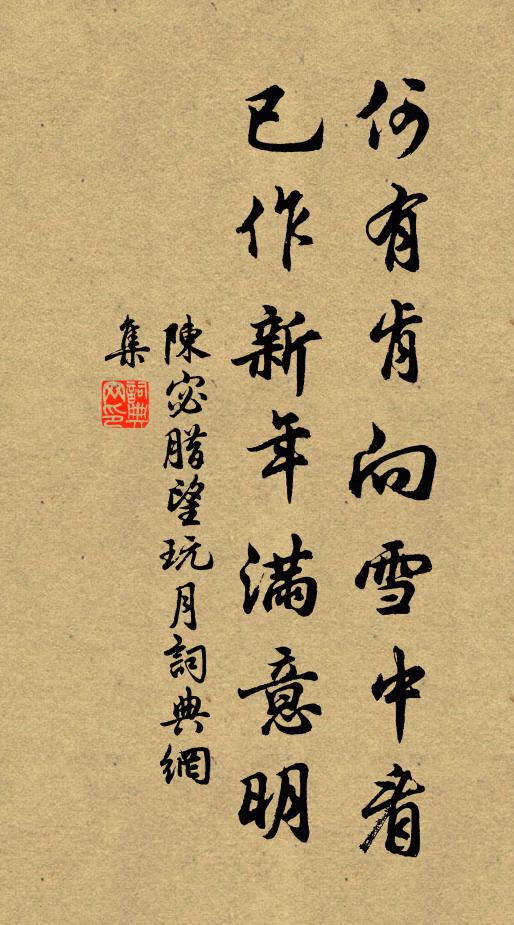 何有肯向雪中看
已作新年滿意明
陳宓腊望玩月詞典網
集
詞典
网印